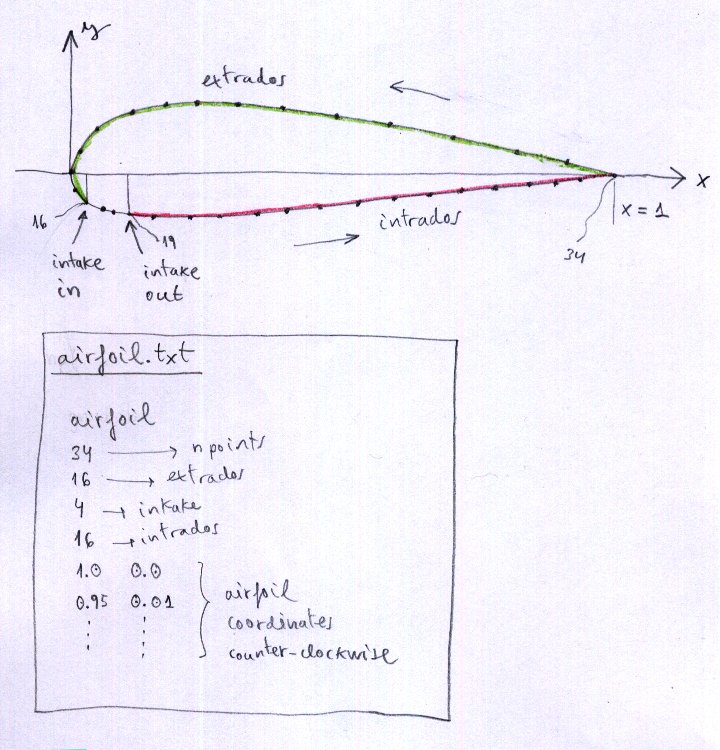 y
extrados
x
16
19
intrados
x = 1
intake
in
intake
out
34
airfoil.txt
airfoil
34 → n points
16 → extrados
4 → inkake
16 → intrados
1.0 0.0
0.95 0.01
airfoil
coordinates
counter-clockwise